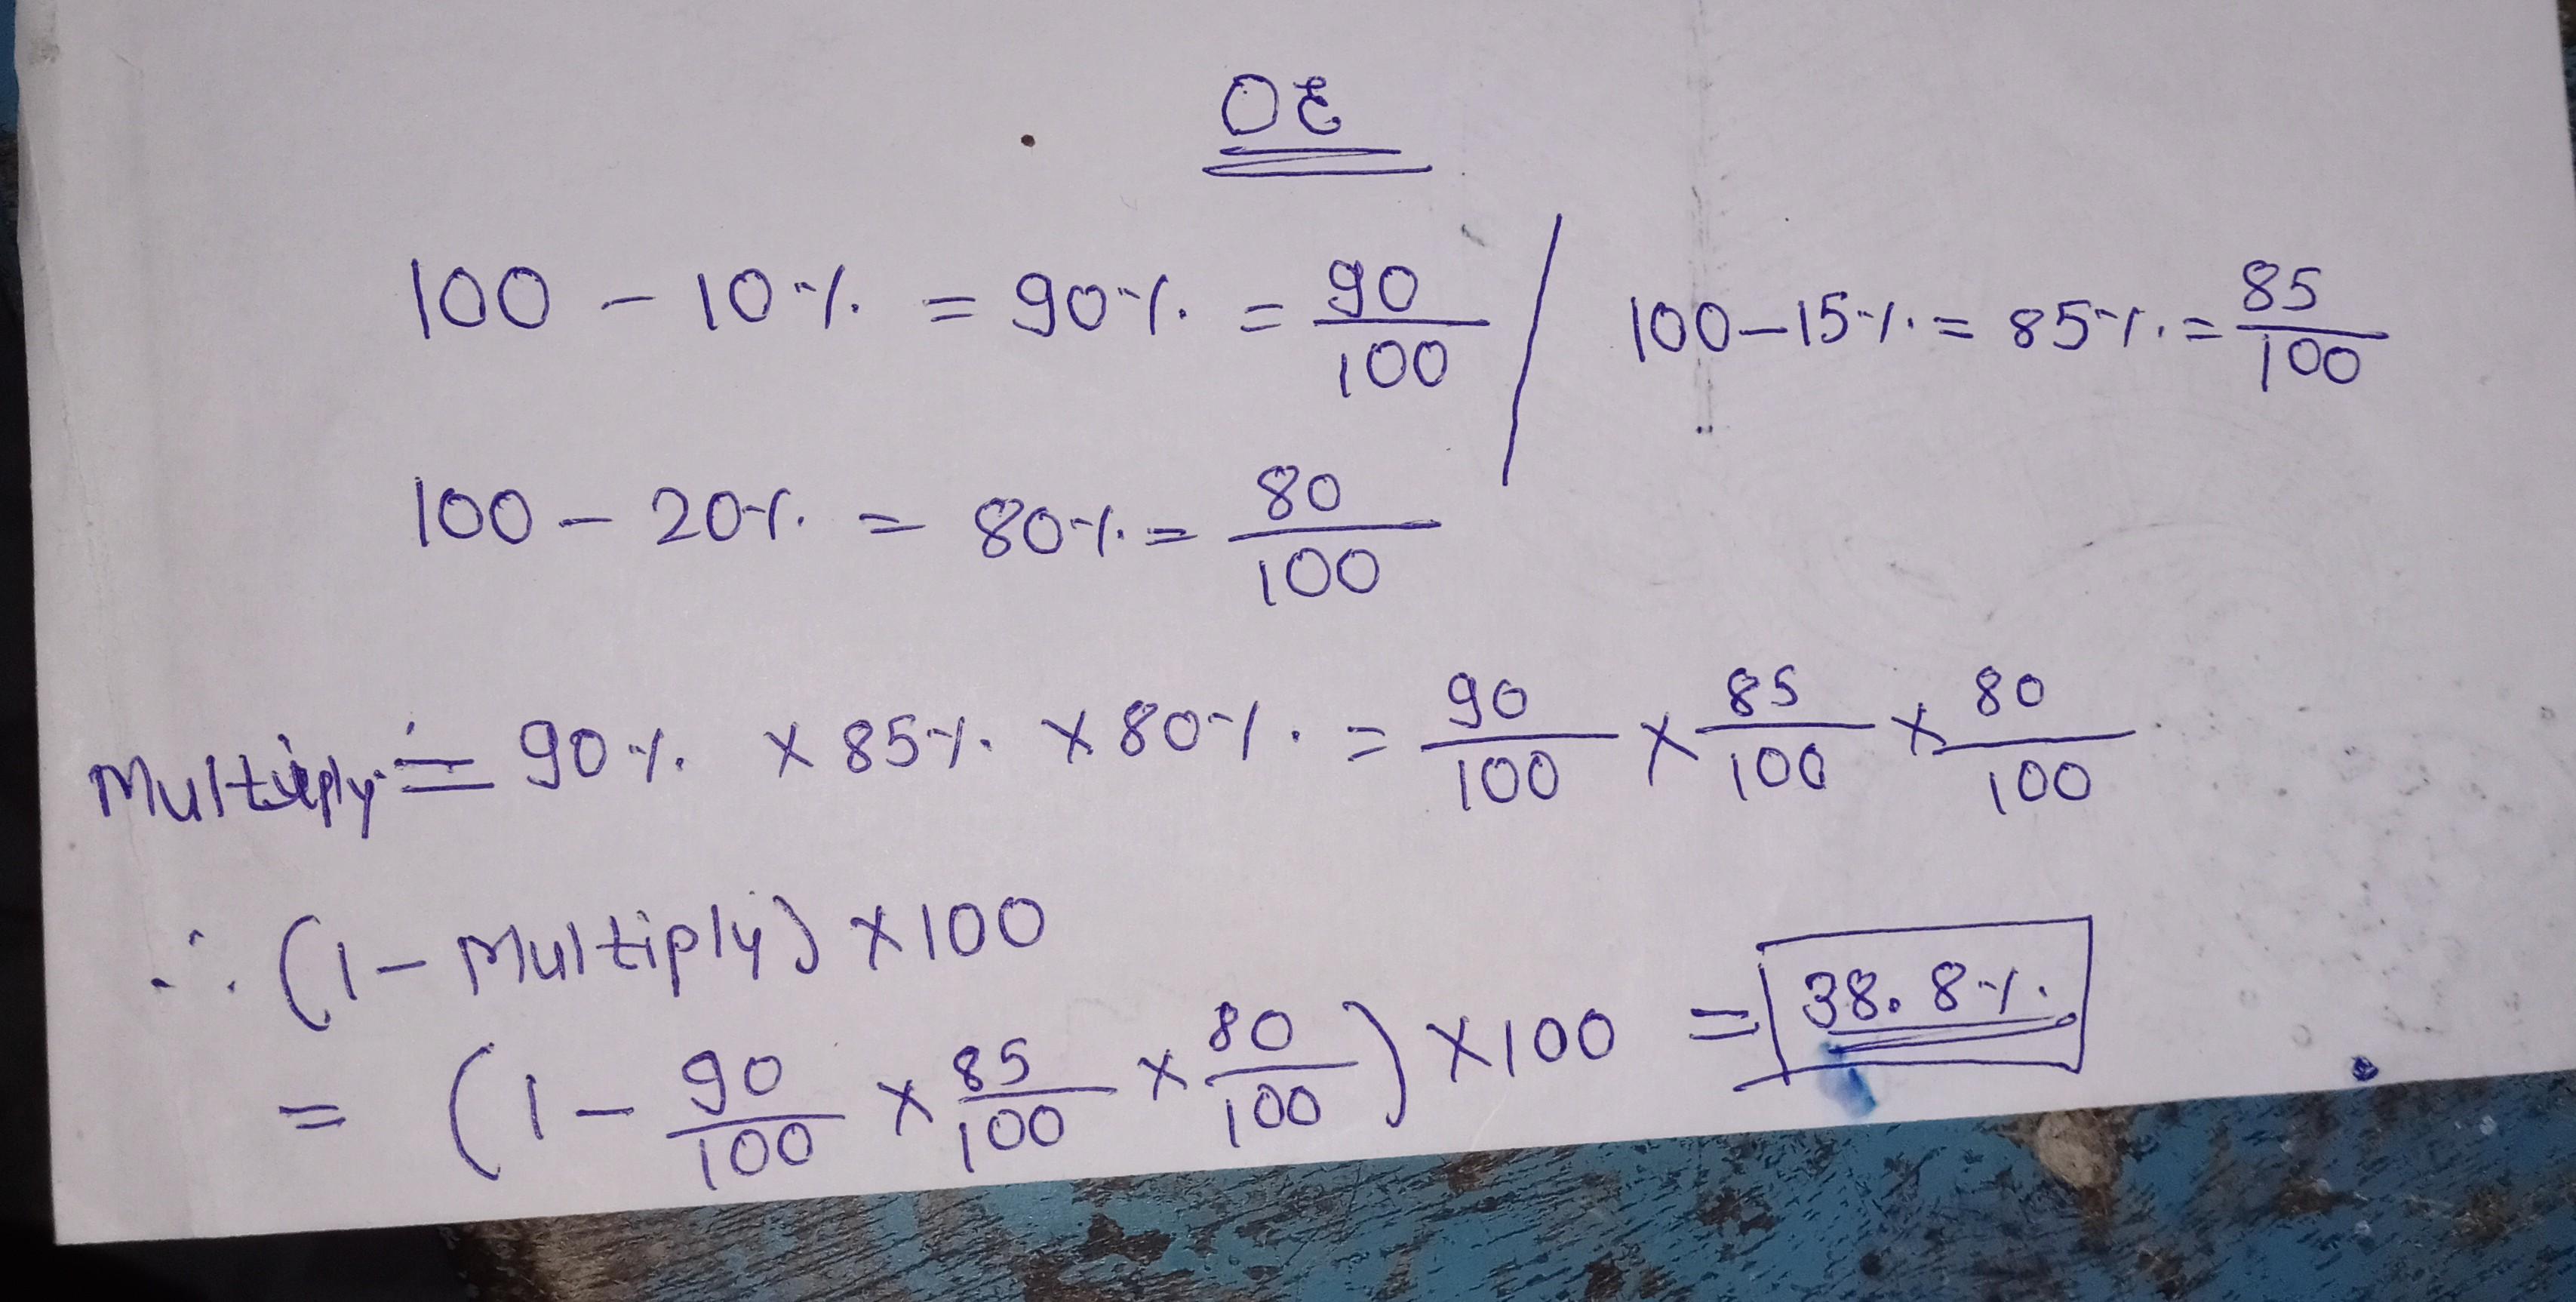 OE
100 - 10% = 90% = 90/100 / 100-15% = 85% = 85/100
100 - 20% = 80% = 80/100
Multiply = 90% × 85% × 80% = 90/100 × 85/100 × 80/100
∴ (1 - Multiply) × 100
= (1 - 90/100 × 85/100 × 80/100) × 100 = 38.8%